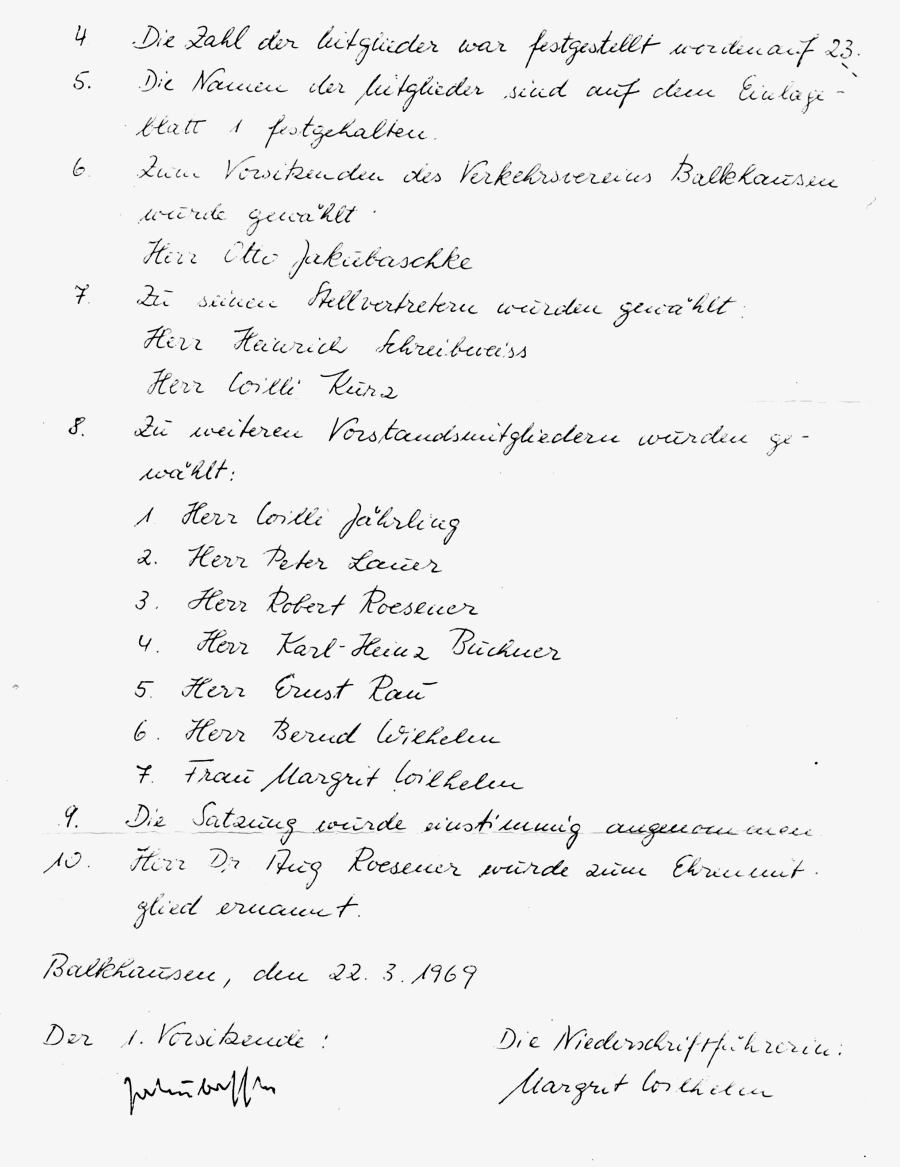 4 Die Zahl der Mitglieder war festgestellt worden auf 23.
5. Die Namen der Mitglieder sind auf dem Einlage-
blatt 1 festgehalten.
6. Zum Vorsitzenden des Verkehrsvereins Balkhausen
wurde gewählt:
Herr Otto Jakubaschke
7. Zu seinen Stellvertretern wurden gewählt:
Herr Heinrich Schreibweiss
Herr Willi Kurz
8. Zu weiteren Vorstandsmitgliedern wurden ge-
wählt:
1. Herr Willi Jährling
2. Herr Peter Lauer
3. Herr Robert Roesener
4. Herr Karl-Heinz Büchner
5. Herr Ernst Rau
6. Herr Bernd Wilhelm
7. Frau Margrit Wilhelm
9. Die Satzung wurde einstimmig angenommen
10. Herr Dr Aug Roesener wurde zum Ehrenmit-
glied ernannt.
Balkhausen, den 22.3.1969
Der 1. Vorsitzende: Die Niederschriftführerin:
Margrit Wilhelm